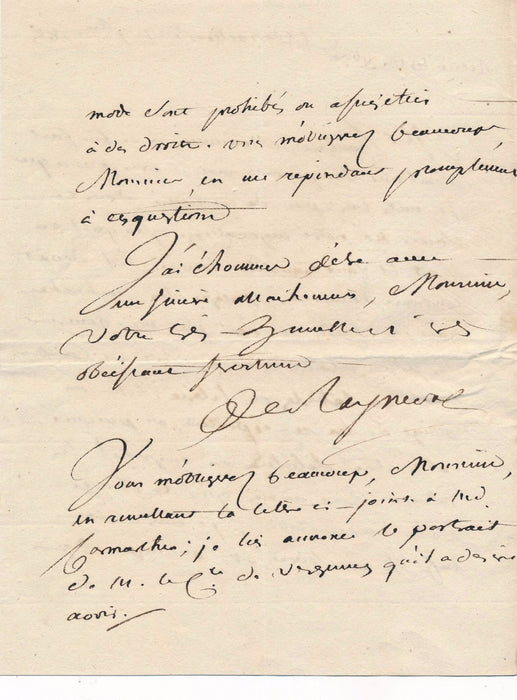 mode sont prohibés ou assujetis
à des droits. vous m'obligerez beaucoup
Monsieur, en me répondant promptement
à ces questions
J'ai l'honneur d'être avec
un sincère attachement, Monsieur,
Votre très humble et très
obéissant serviteur
De Rayneval
Vous m'obligerez beaucoup, Monsieur,
en remettant la lettre ci-jointe à Md.
Carmarthen; je lui annonce le portrait
de M. le Cte de Vergennes qu'il a désiré
avoir.